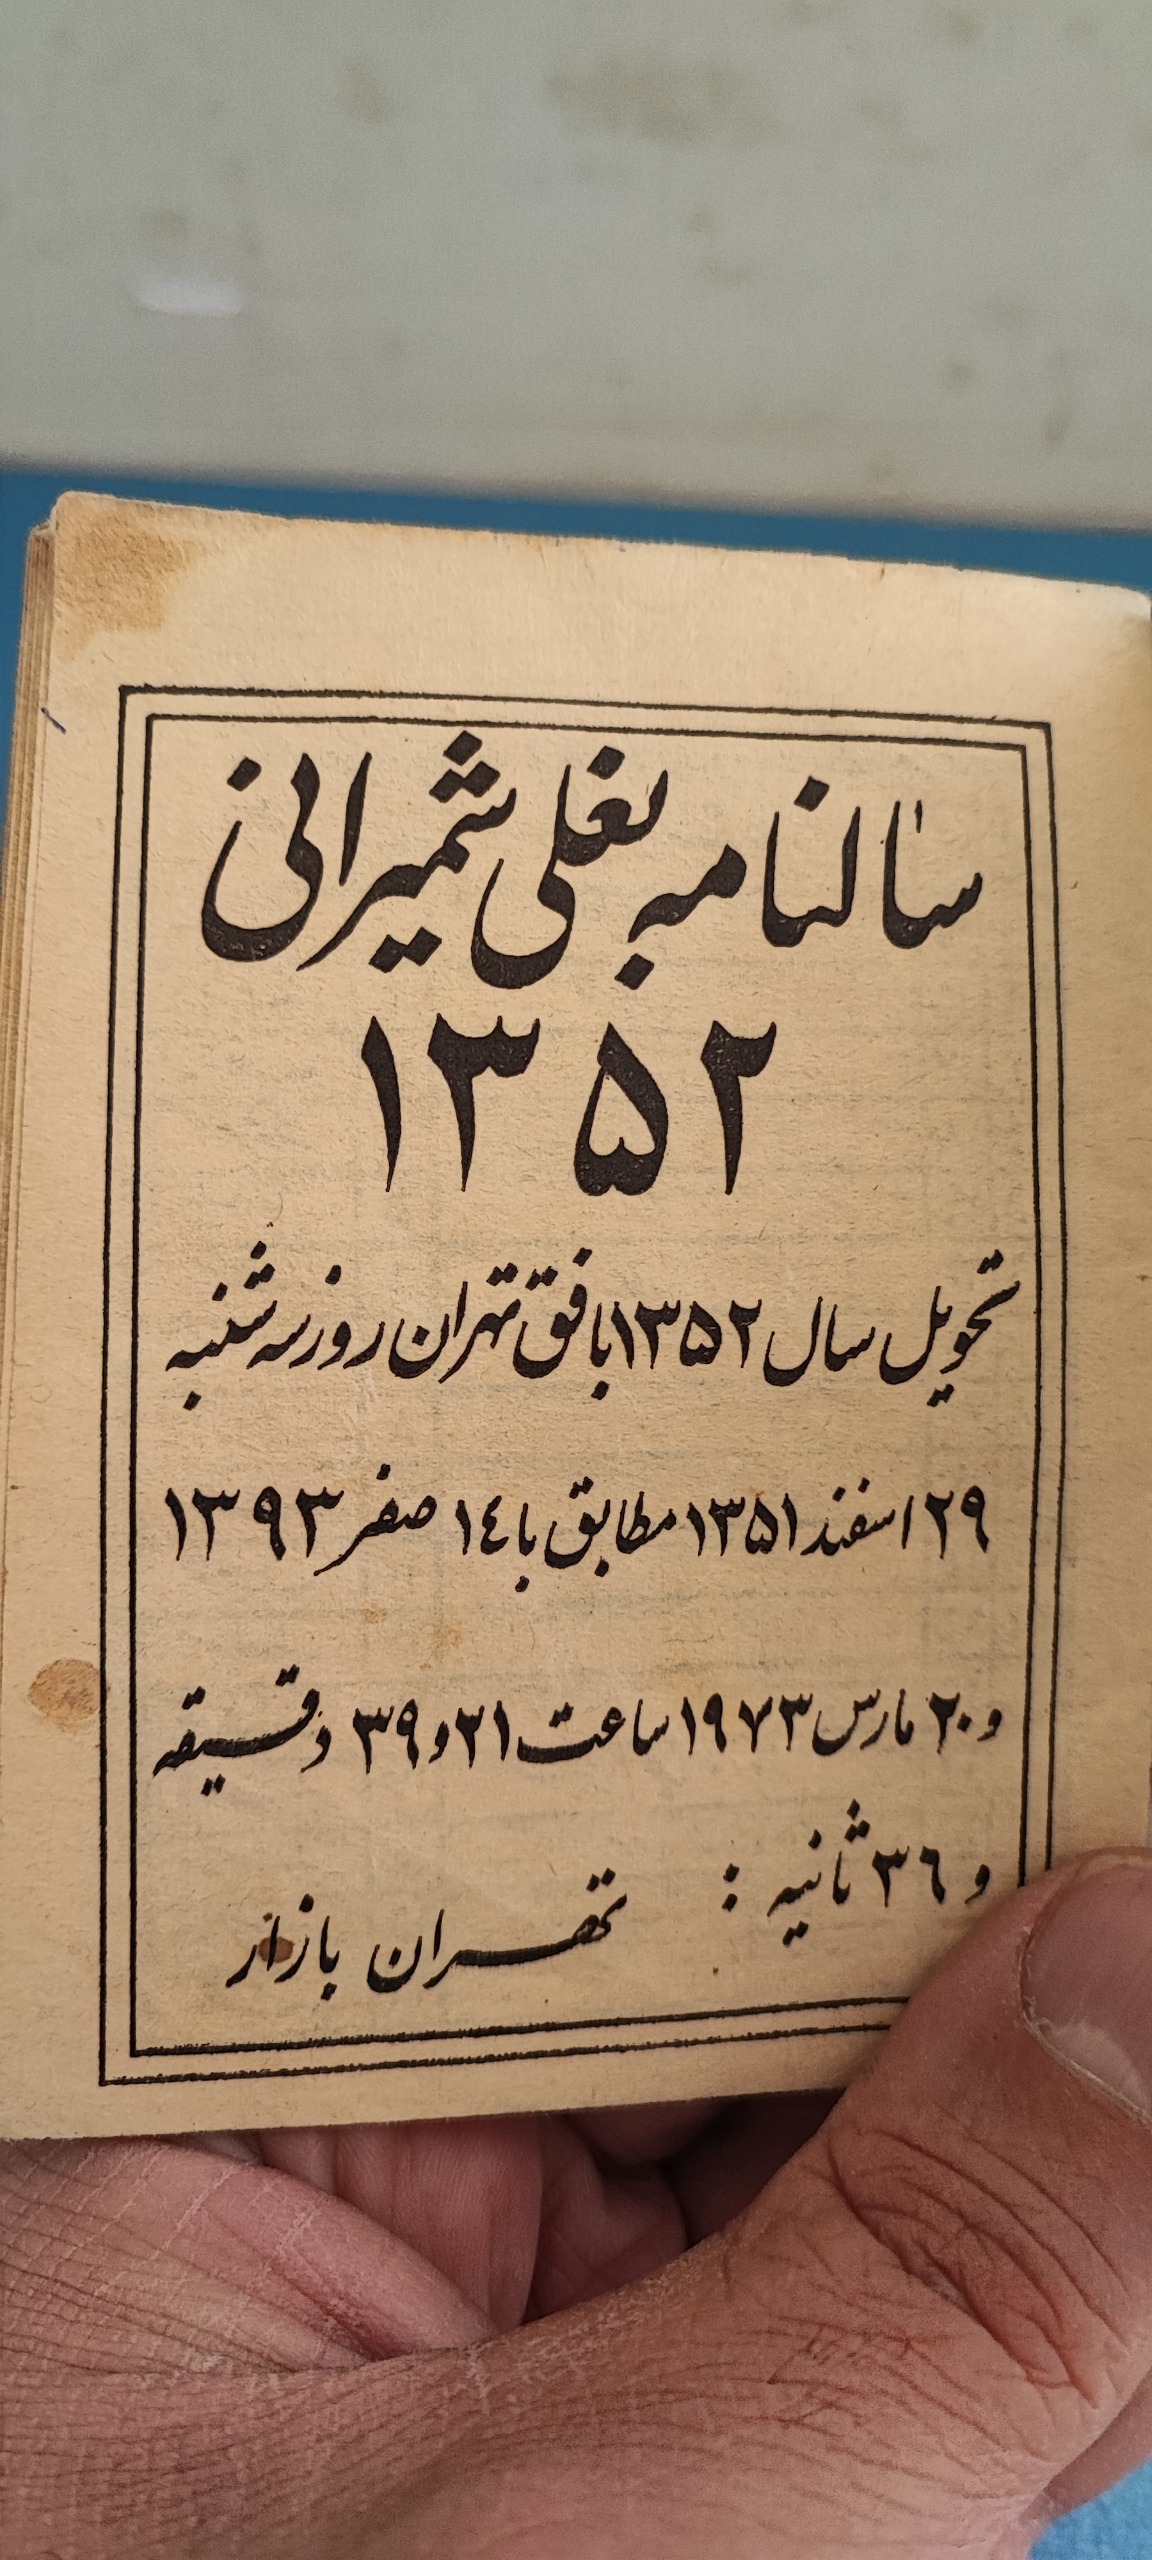 سالنامه بغلی شمیرانی
۱۳۵۲
تحویل سال ۱۳۵۲ بافق تهران روز سه شنبه
۲۹ اسفند ۱۳۵۱ مطابق با ۱٤ صفر ۱۳۹۳
و ۲۰ مارس ۱۹۷۳ ساعت ۲۱ و ۳۹ دقیقه
و ۳٦ ثانیه : تهران بازار